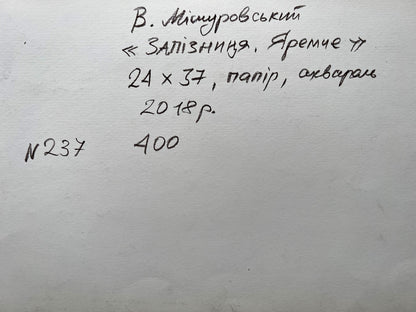 В. Мішуровський
« Залізниця. Яремче »
24 х 37, папір, акварель
2018р.
N237 400